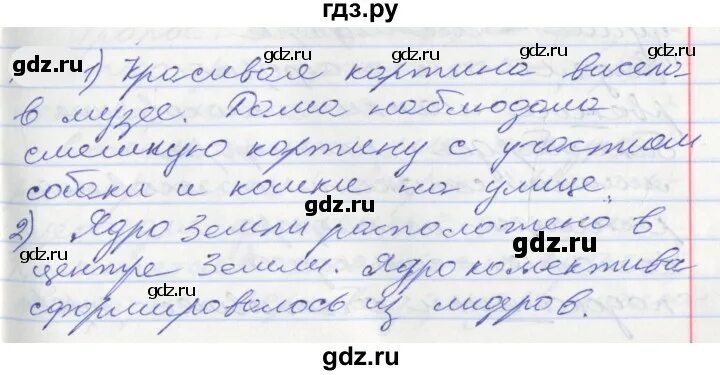 гдз.ру
1) Красивая картина висела
в музее. Дама наблюдала
смешную картину с участием
собаки и кошки на улице
2) Ядро Земли расположено в
центре Земли. Ядро колектива
сформировалось из лидеров.
gdz.ru
gdz.ru
gdz.ru
gdz.ru
gdz.ru
gdz.ru
gdz.ru
gdz.ru
gdz.ru
gdz.ru
gdz.ru
gdz.ru
gdz.ru
gdz.ru